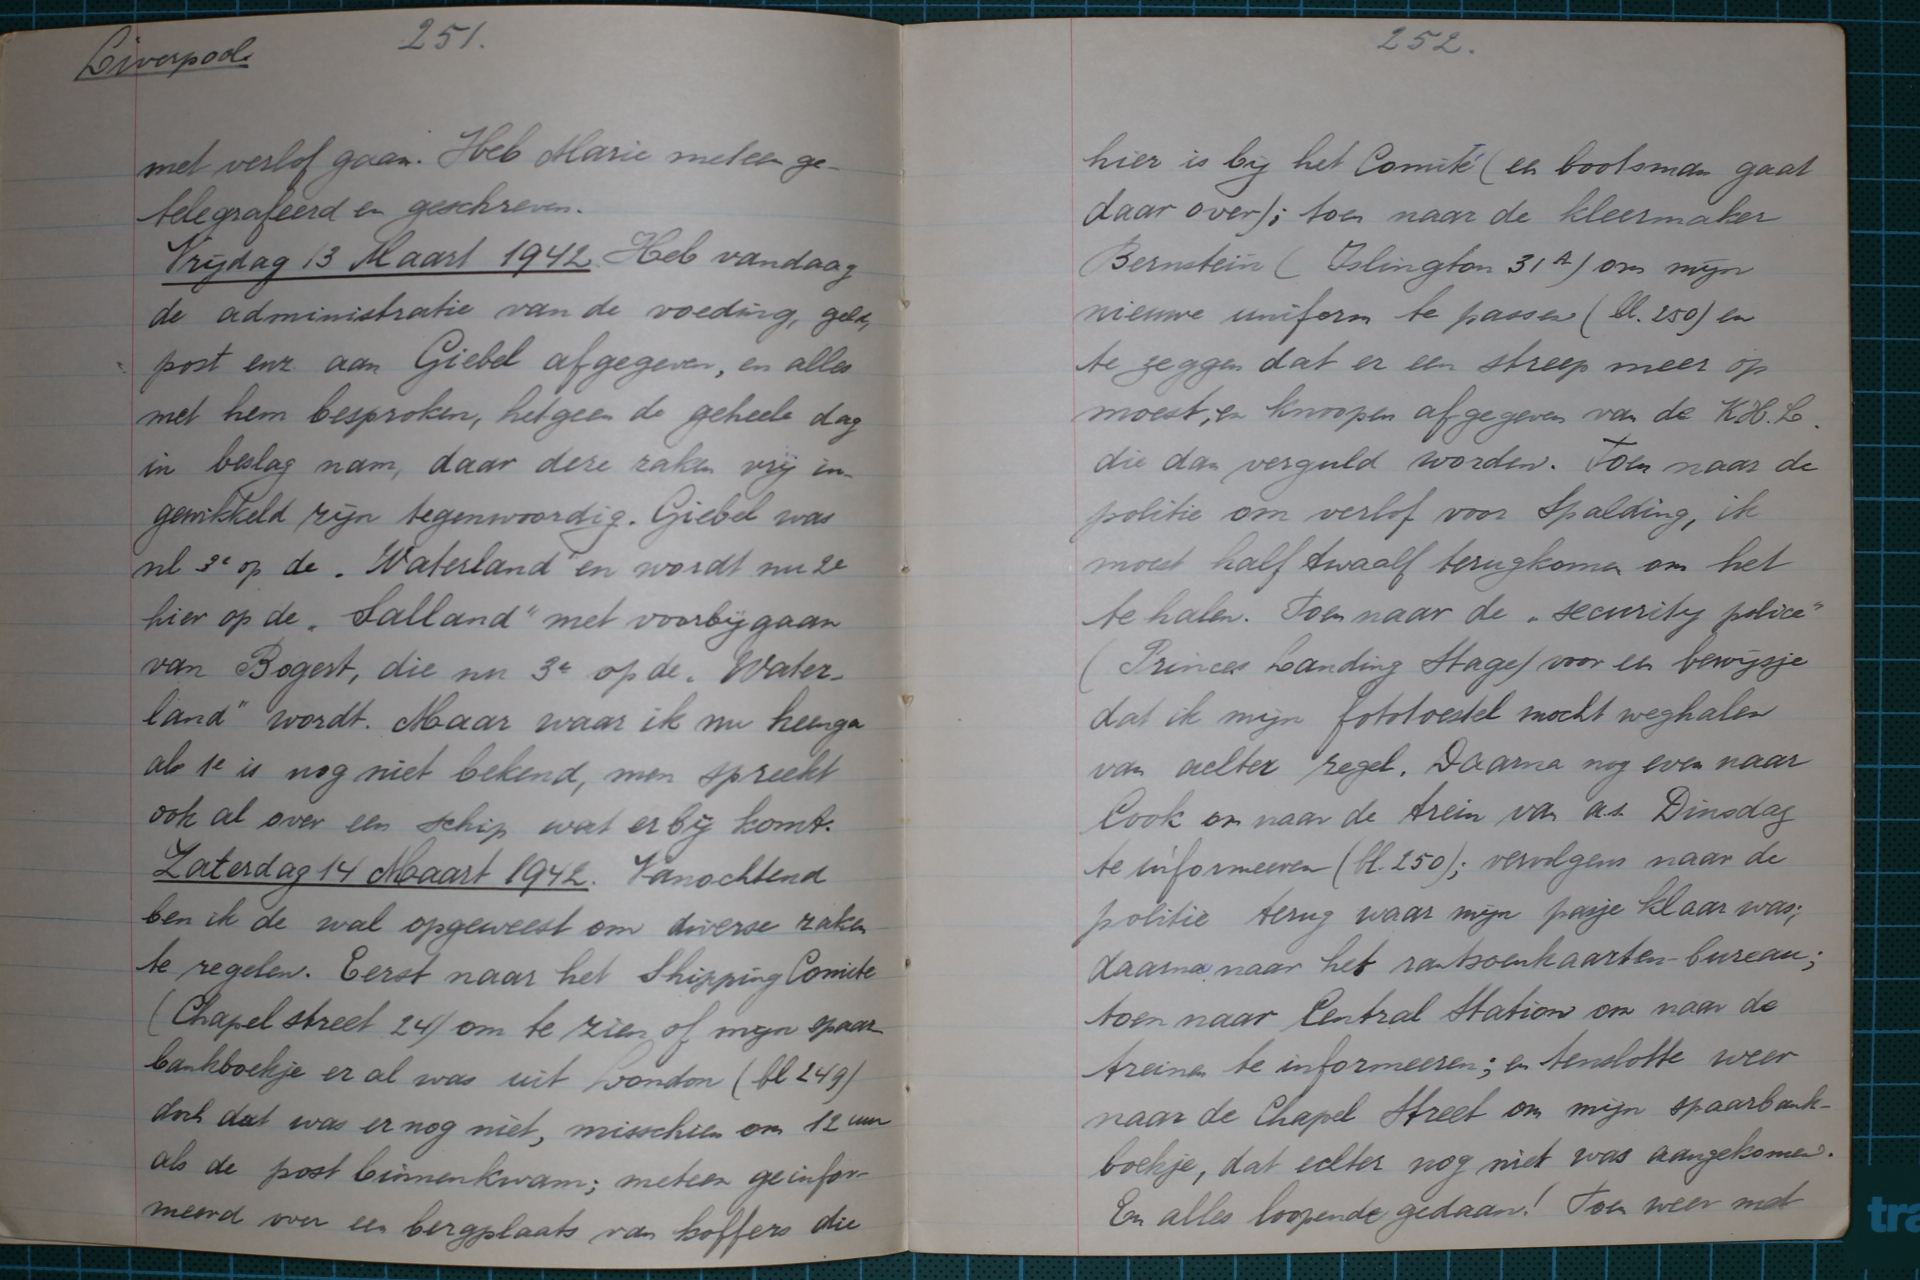 Liverpool.
251.
met verlof gaan. Heb Marie meteen ge-
telegrafeerd en geschreven.
Vrijdag 13 Maart 1942. Heb vandaag
de administratie van de voeding, geld,
post enz. aan Giebel afgegeven, en alles
met hem besproken, hetgeen de geheele dag
in beslag nam, daar deze zaken vrij in-
gewikkeld zijn tegenwoordig. Giebel was
nl 3e op de „Waterland" en wordt nu 2e
hier op de „Salland" met voorbijgaan
van Bogert, die nu 3e op de „Water-
land" wordt. Maar waar ik nu heenga
als 1e is nog niet bekend, men spreekt
ook al over een schip wat erbij komt.
Zaterdag 14 Maart 1942. Vanochtend
ben ik de wal opgeweest om diverse zaken
te regelen. Eerst naar het Shipping Comite
(Chapel street 24) om te zien of mijn spaar
bankboekje er al was uit London (bl 249)
doch dat was er nog niet, misschien om 12 uur
als de post binnenkwam; meteen geinfor-
meerd over een bergplaats van koffers die
252.
hier is bij het Comité (en bootsman gaat
daar over); toen naar de kleermaker
Bernstein (Islington 31A) om mijn
nieuwe uniform te passen (bl. 250) en
te zeggen dat er een streep meer op
moest, en knoopen afgegeven van de K.H.L.
die dan verguld worden. Toen naar de
politie om verlof voor Spalding, ik
moest half twaalf terugkomen om het
te halen. Toen naar de „security police"
(Princes Landing Stage) voor een bewijsje
dat ik mijn fototoestel mocht weghalen
van achter zegel. Daarna nog even naar
Cook om naar de trein van a.s. Dinsdag
te informeeren (bl. 250); vervolgens naar de
politie terug waar mijn pasje klaar was;
daarna naar het rantsoenkaarten-bureau;
toen naar Central Station om naar de
treinen te informeeren; en tenslotte weer
naar de Chapel Street om mijn spaarbank-
boekje, dat echter nog niet was aangekomen.
En alles loopende gedaan! Toen weer met
tra